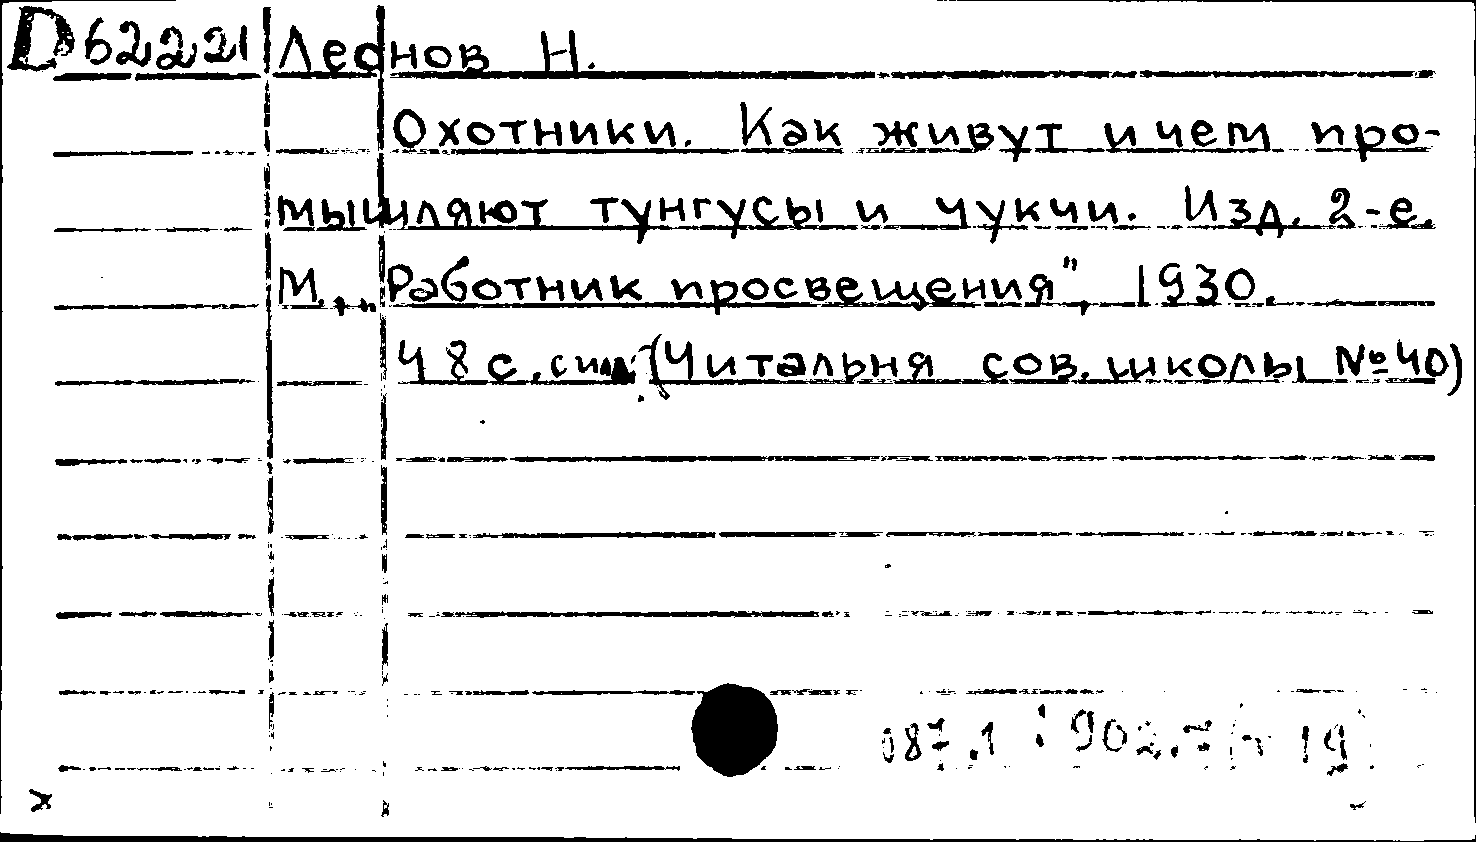 D 62221 Леонов Н.
Охотники. Как живут и чем про-
мышляют тунгусы и чукчи. Изд. 2-е.
М., „Работник просвещения", 1930.
48 с. с ил. (Читальня сов. школы №40)
087.1 : 902.7